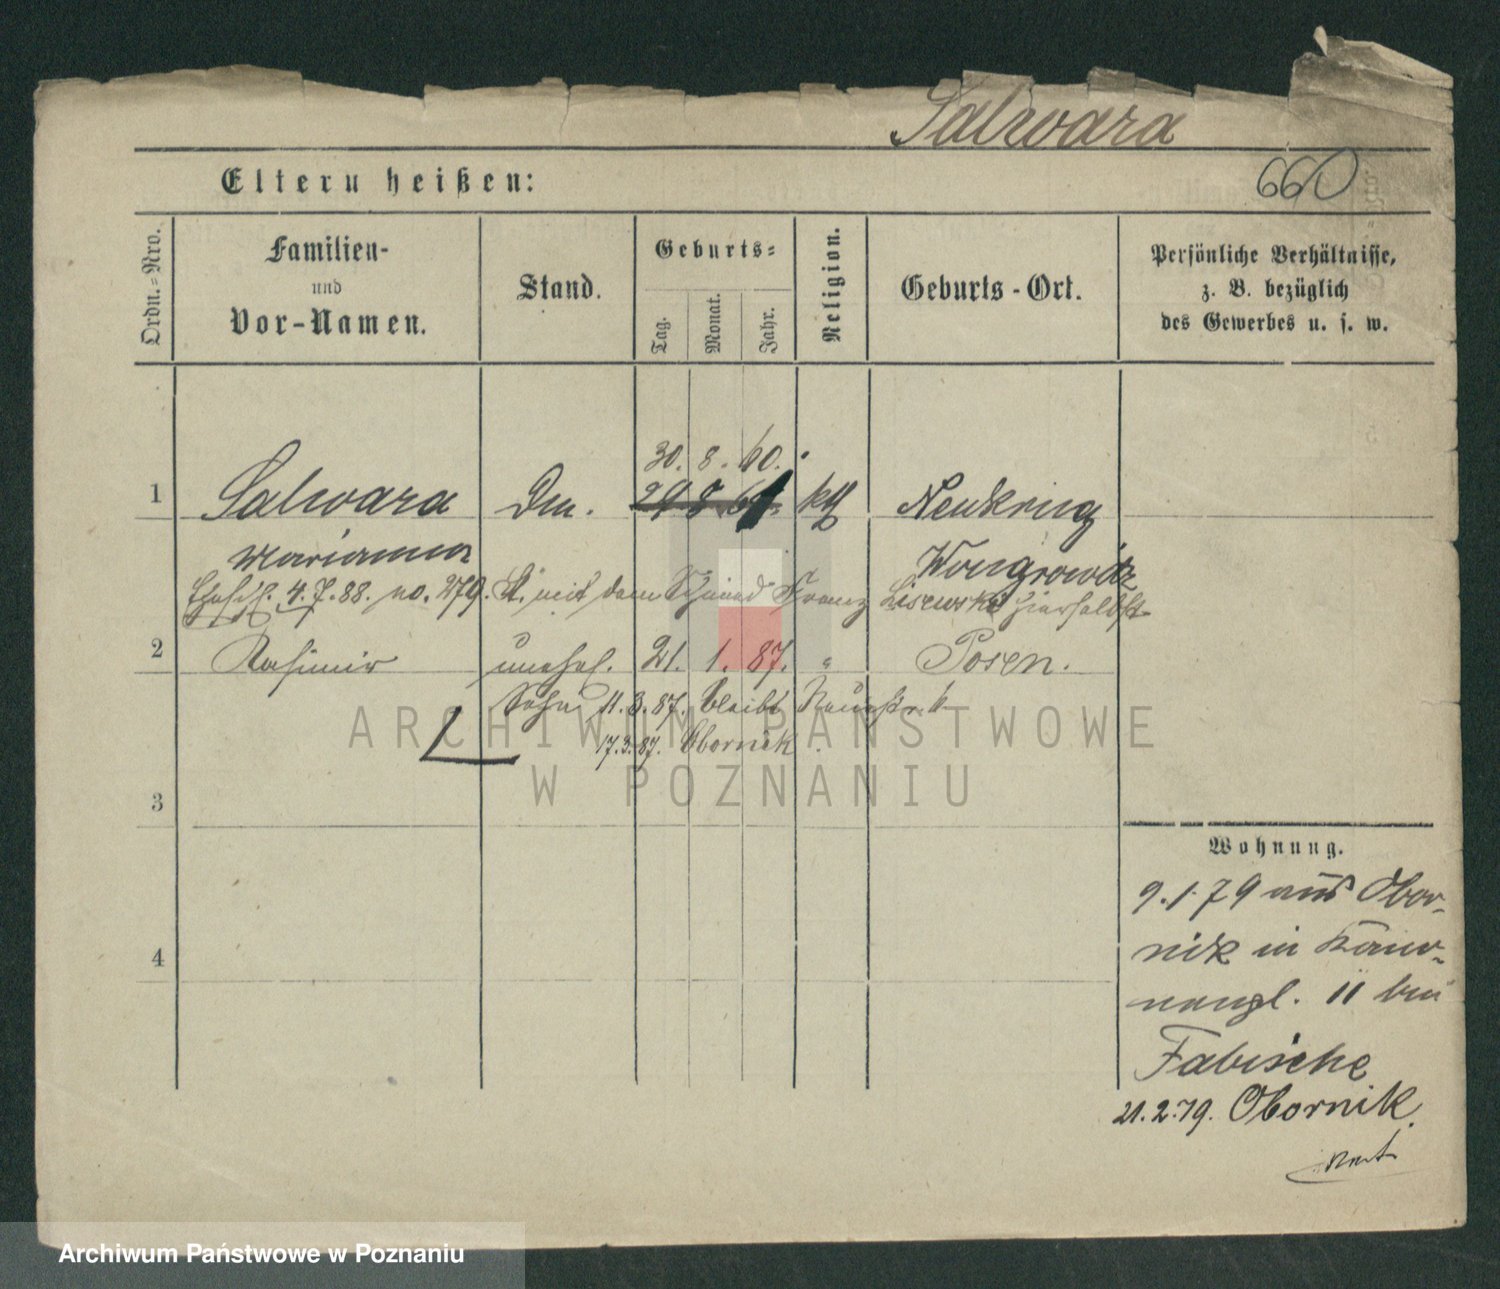 Salwara
660
Eltern heißen:
Ordn.-Nro.
Familien-
und
Vor-Namen.
Stand.
Geburts-
Tag.
Monat.
Jahr.
Religion.
Geburts-Ort.
Persönliche Verhältnisse,
z. B. bezüglich
des Gewerbes u. s. w.
30. 8. 60.
1 Salwara Dm. 29 8 61. kth Neukrug
Marianna Wongrowitz
4.7.88. no. 279. St. mit dem Schmied Franz Lisewski hierselbst
2 Kasimir unehel. 21. 1. 87. " Posen.
Sohn 11.3.87. bleibt
17.3.87. Obornik.
ARCHIWUM PAŃSTWOWE
W POZNANIU
3
4
Wohnung.
9.1.79 aus Obor-
nik in
11 bei
Fabische
21.2.79. Obornik.
Archiwum Państwowe w Poznaniu